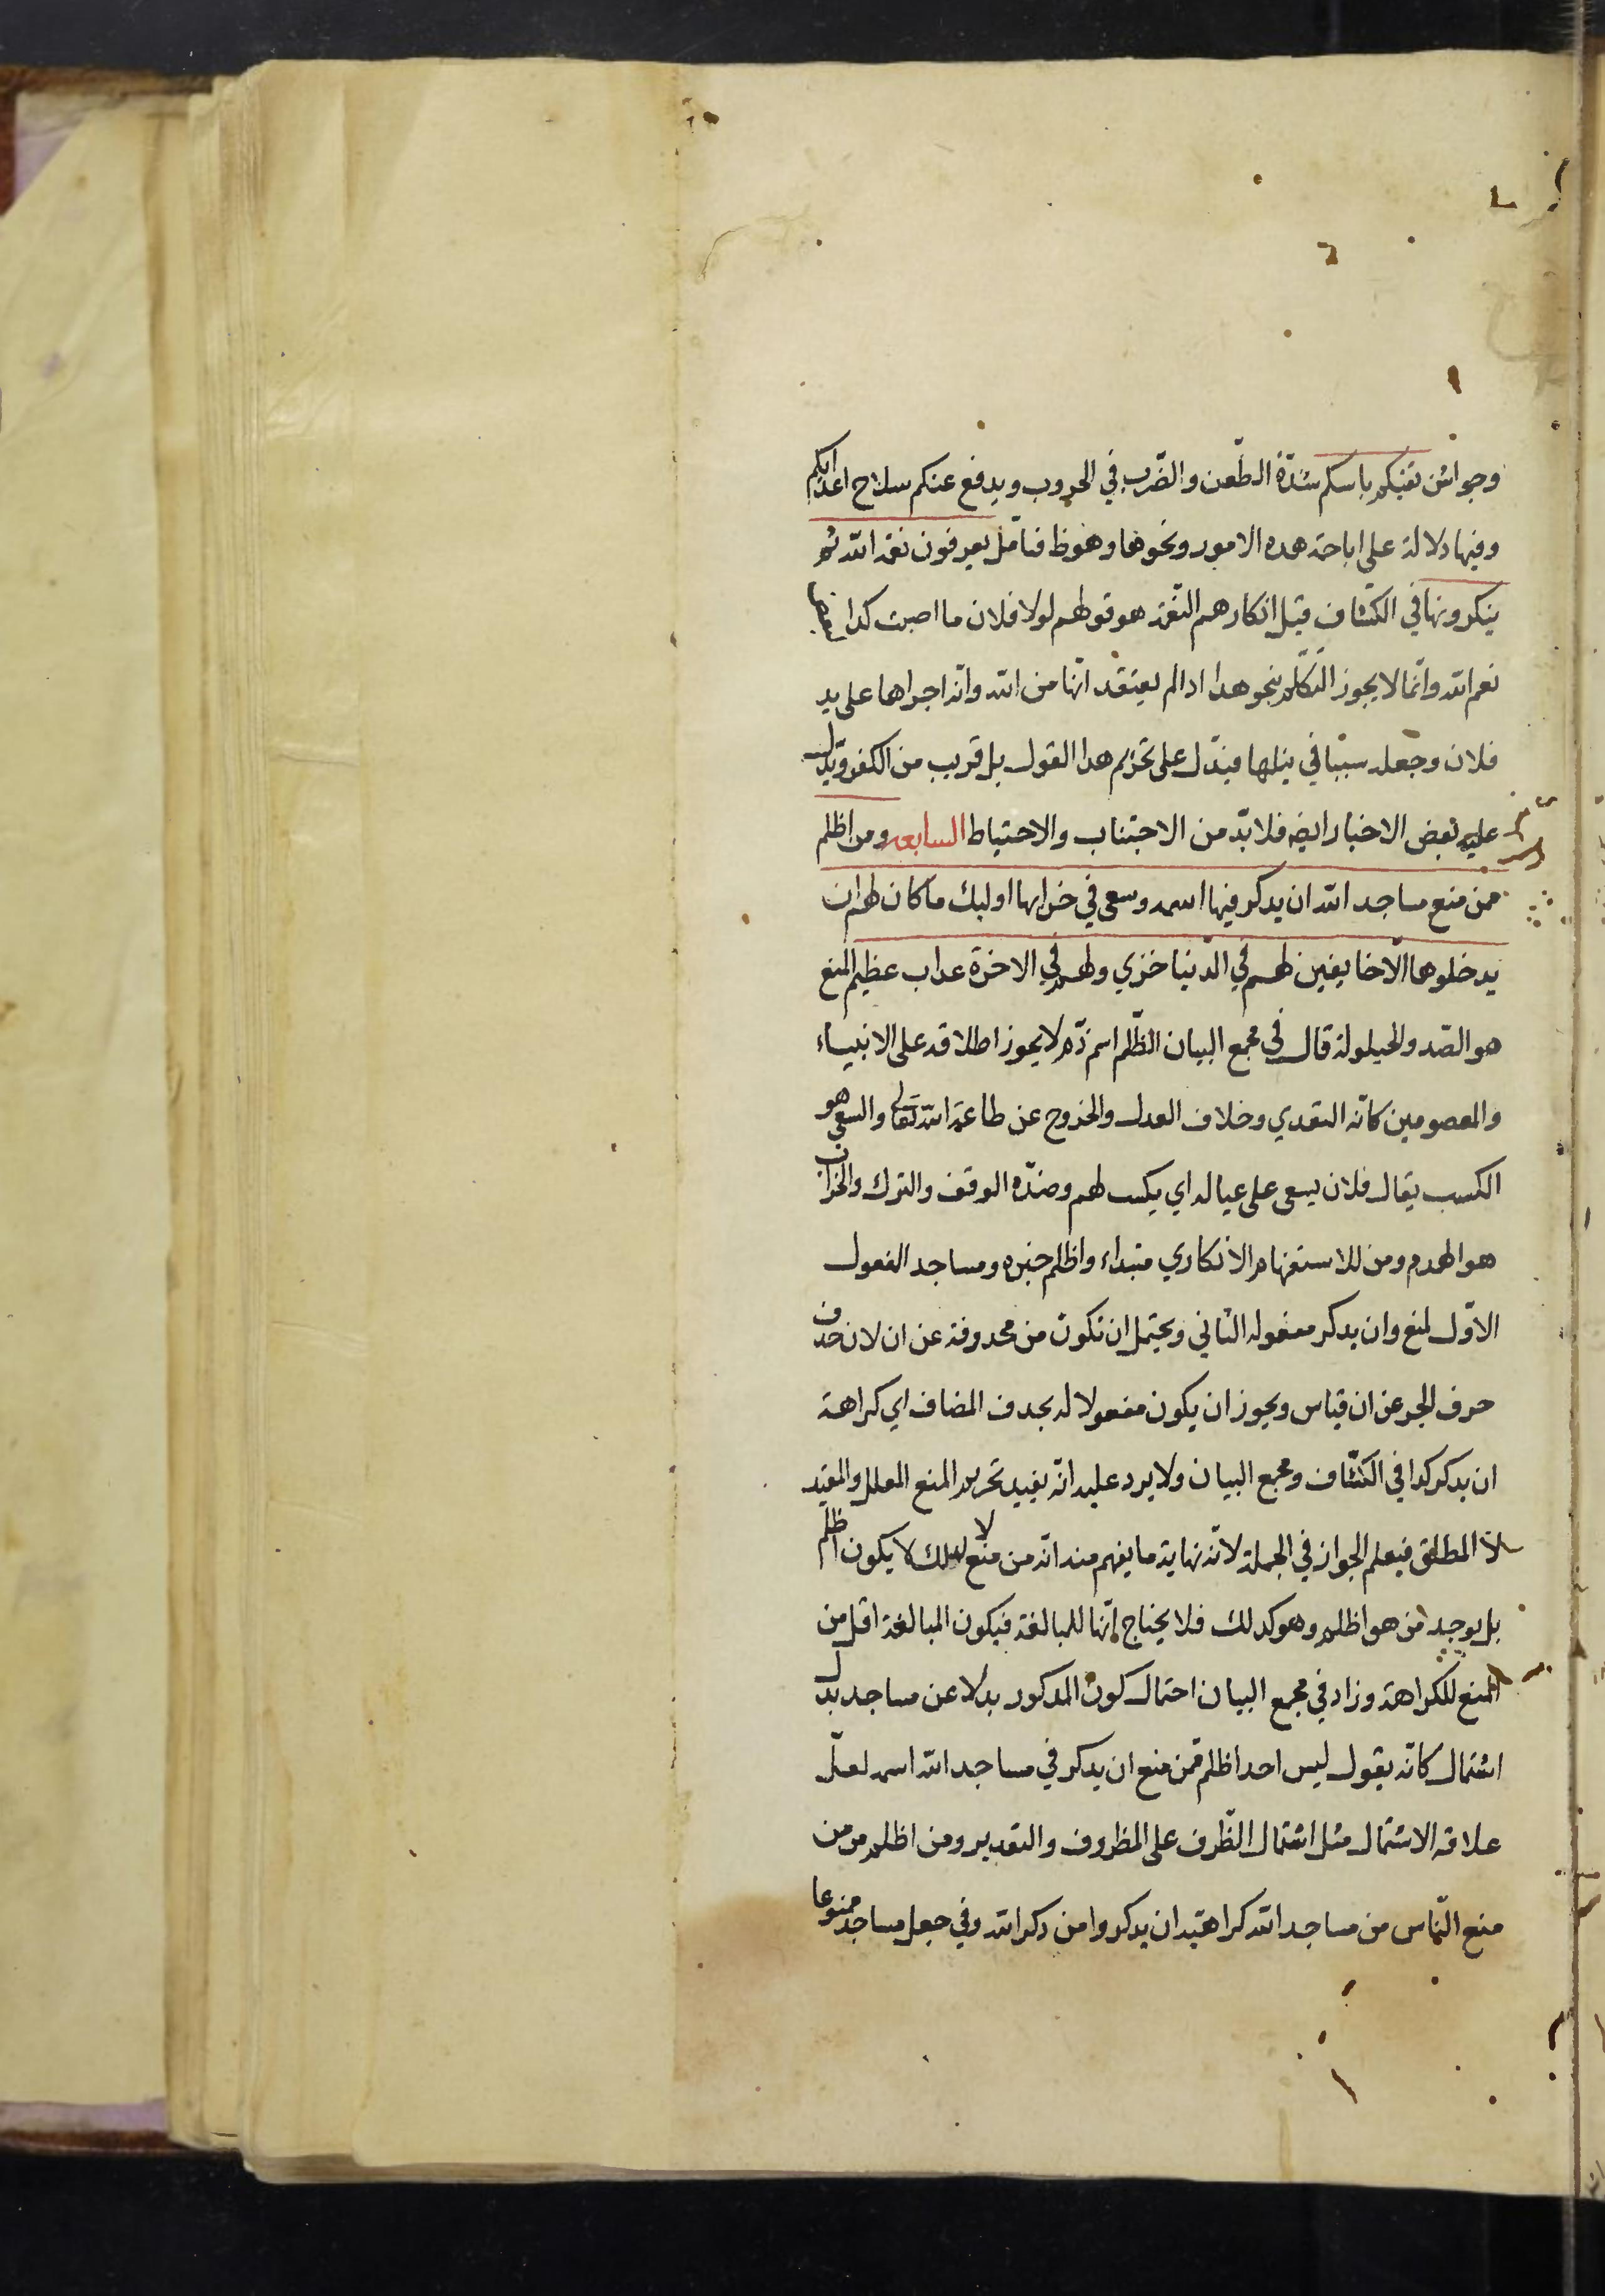 وجواشن تقيكم باسكم شدّة الطّعن والضّرب في الحروب ويدفع عنكم سلاح اعدايكم
وفيها دلالة على اباحة هده الامور ونحوها وهو ظ فتامّل يعرفون نعمة اللّه ثم
ينكرونها في الكشّاف قيل انكارهم النّعمة هو قولهم لولا فلان ما اصبت كدا
نعم اللّه وانّما لا يجوز التّكلّم بنحو هدا ادا لم يعتقد انّها من اللّه وانّه اجراها على يد
فلان وجعله سببا في نيلها فيدّل على تحريم هدا القول بل قريب من الكفر ويدل
عليه بعض الاخبار ايضه فلا بدّ من الاجتناب والاحتياط السابعه ومن اظلم
ممن منع مساجد اللّه ان يدكر فيها اسمه وسعى في خرابها اولئك ما كان لهم ان
يدخلوها الّا خايفين لهم في الدّنيا خزي ولهم في الاخرة عداب عظيم المنع
هو الصّد والحيلولة قال في مجمع البيان الظّلم اسم ذّم لا يجوز اطلاقه على الانبياء
والمعصومين كانّه التعدي وخلاف العدل والخروج عن طاعة اللّه تعالى والسعي هو
الكسب يقال فلان يسعى على عياله اي يكسب لهم وضدّه الوقف والترك والخراب
هو الهدم ومن للاستفهام الانكاري مبتداء واظلم خبره ومساجد المفعول
الاوّل لمنع وان يدكر مفعوله الثاني ويحتمل ان تكون من محدوفة عن ان لان حدف
حرف الجر عن ان قياس ويجوز ان يكون مفعولا له بحدف المضاف اي كراهة
ان يدكر كدا في الكشّاف ومجمع البيان ولا يرد عليه انّه يفيد تحريم المنع المعلل والمقيد
لا المطلق فيعلم الجواز في الجملة لانّه نهاية ما يفهم منه انّه من منع لا لدلك لا يكون اظلم
بل يوجد من هو اظلم وهو كدلك فلا يحتاج انّها للمبالغة فيكون المبالغة اقل من
المنع للكراهة وزاد في مجمع البيان احتمال كون المدكور بدلا عن مساجد بدل
اشتمال كانّه يقول ليس احد اظلم ممّن منع ان يدكر في مساجد اللّه اسمه لعلّ
علاقه الاشتمال مثل اشتمال الظّرف على المظروف والتقدير ومن اظلم ممن
منع النّاس من مساجد اللّه كراهتة ان يدكروا من دكر اللّه وفي جعل مساجد ممنوعا